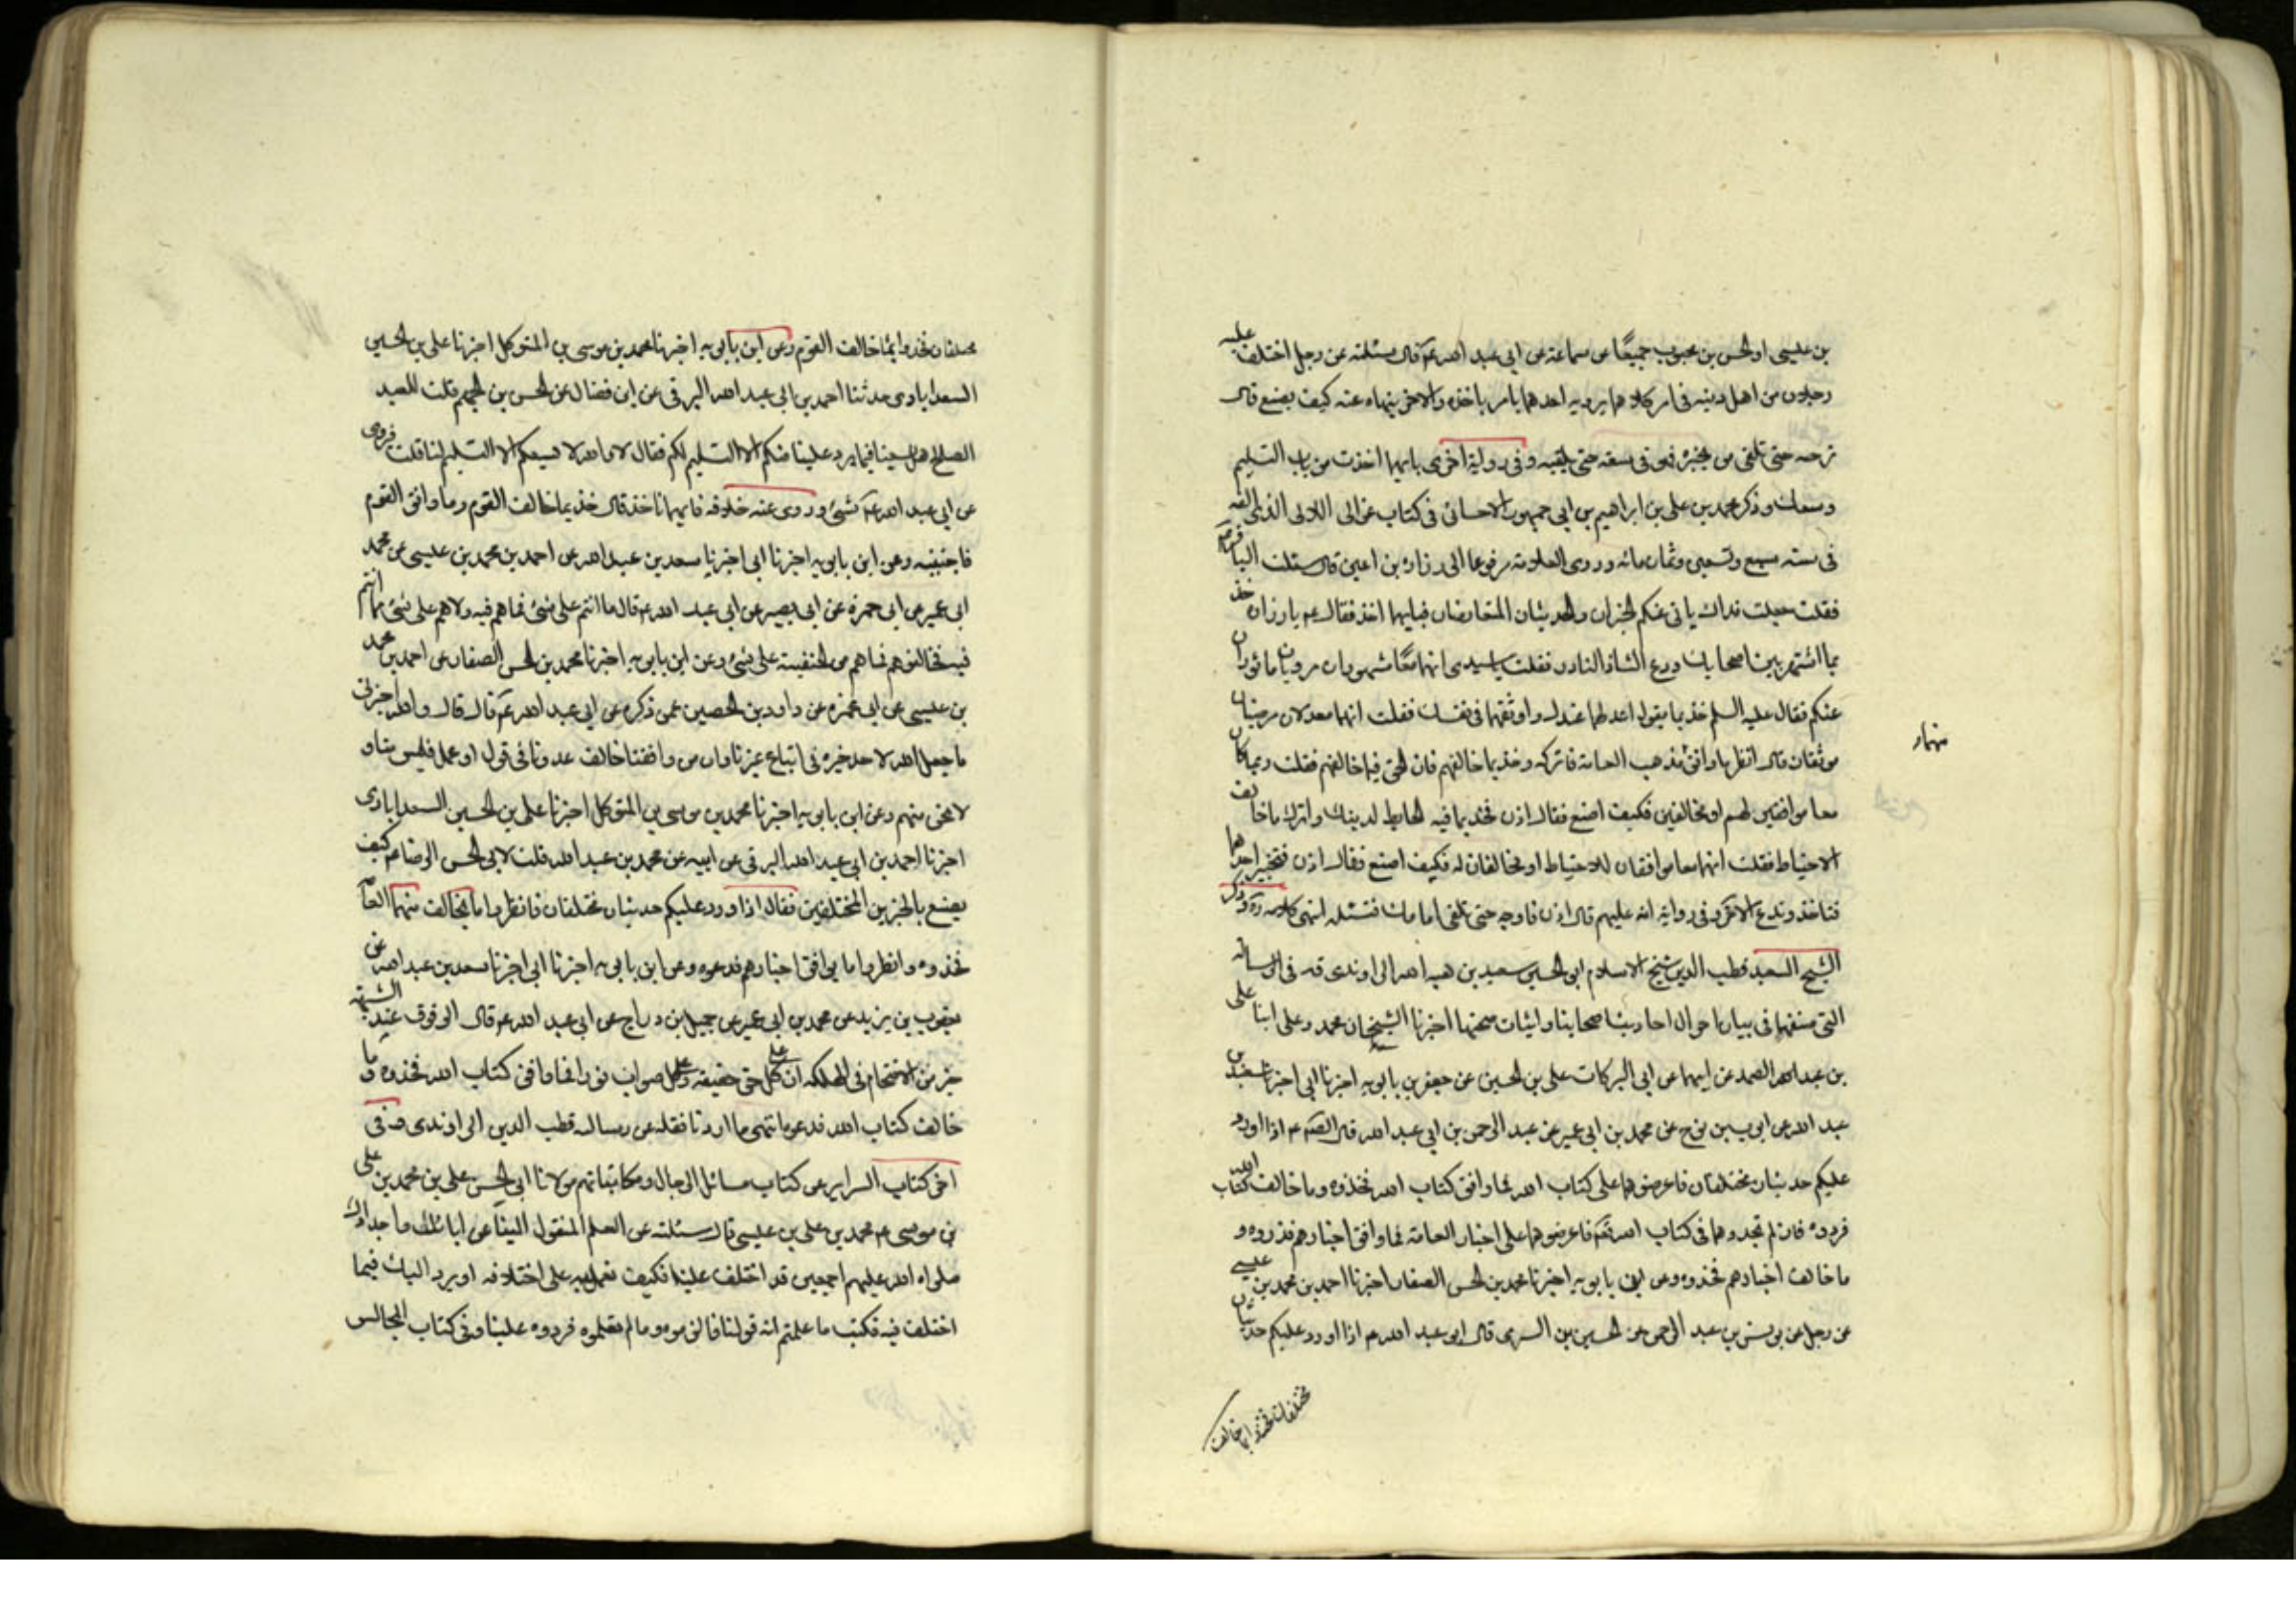 بن عليسى والحسن بن محبوب جميعًا عن سماعة عن ابى عبد الله ع قال سئلته عن رجل اختلف عليه
رجلان من اهل دينه فى امر كلاهما يرويه احدهما يامر باخذه والاخر ينهاه عنه كيف يصنع قال
يرجه حتى تلقى من يخبره فهو فى سعة حتى يلقيه وفى رواية اخرى بايهما اخذت من باب التسليم
وسعك وذكر محمد بن على بن ابراهيم بن ابى جمهور الاحسائى فى كتاب غوالى اللالى الذى الفه
فى سنة سبع وتسعين وثمان مائه وروى العلامة مرفوعا الى زرارة بن اعين قال سئلت الباقر ع
فقلت جعلت فداك ياتى عنكم الخبران والحديثان المتعارضان فبايهما اخذ فقال ع يا زرارة خذ
بما اشتهر بين اصحابك ودع الشاذ النادر فقلت يا سيدى انهما معًا مشهوران مرويان ماثوران
عنكم فقال عليه السلم خذ بما يقول اعدلهما عندك واوثقهما فى نفسك فقلت انهما معدلان مرضيان
موثقان قال انظر ما وافق مذهب العامة فاتركه وخذ بما خالفهم فان الحق فيما خالفهم فقلت ربما كان
معا موافقين لهم او مخالفين فكيف اصنع فقال اذن فخذ بما فيه الحايط لدينك واترك ما خالف
الاحتياط فقلت انهما معا موافقان للاحتياط او مخالفان له فكيف اصنع فقال اذن فتخير احدهما
فتاخذ وتدع الاخر وفى رواية انه عليهم قال اذن فارجه حتى تلقى امامك فتسئله انتهى كلامه ره وذكر
الشيخ السعيد قطب الدين شيخ الاسلام ابى الحسين سعيد بن هبه الله الراوندى قه فى الرسالة
التى صنفها فى بيان احوال احاديث اصحابنا واثبات صحتها اخبرنا الشيخان محمد وعلى ابنا على
بن عبد الصمد عن ابيهما عن ابى البركات على بن الحسين عن جعفر بن بابويه اخبرنا ابى اخبرنا سعد بن
عبد الله عن ايوب بن نوح عن محمد بن ابى عمير عن عبد الرحمن بن ابى عبد الله قال الصم ع اذا اورد
عليكم حديثان مختلفان فاعرضوهما على كتاب الله فما وافق كتاب الله فخذوه وما خالف كتاب الله
فردوه فان لم تجدوهما فى كتاب الله فاعرضوهما على اخبار العامة فما وافق اخبارهم فذروه و
ما خالف اخبارهم فخذوه وعن ابن بابويه اخبرنا محمد بن الحسن الصفار اخبرنا احمد بن محمد بن عليسى
عن رجل عن يونس بن عبد الرحمن عن الحسين بن السرى قال ابو عبد الله ع اذا اورد عليكم حديثان
مختلفان فخذوا بما خالف
مختلفان فخذوا بما خالف القوم وعن ابن بابويه اخبرنا محمد بن موسى بن المتوكل اخبرنا على بن الحسين
السعدابادى حدثنا احمد بن ابى عبد الله البرقى عن ابن فضال عن الحسن بن الجهم قلت للعبد
الصالح هل يسعنا فيما يرد علينا منكم الا التسليم لكم فقال لا والله لا يسعكم الا التسليم لنا قلت فروى
عن ابى عبد الله ع شئ وروى عنه خلافه فايهما ناخذ قال خذ بما خالف القوم وما وافق القوم
فاجتنبه وعن ابن بابويه اخبرنا ابى اخبرنا سعد بن عبد الله عن احمد بن محمد بن عليسى عن محمد
ابى عمير عن ابى حمزة عن ابى بصير عن ابى عبد الله ع قال ما انتم على شئ مما هم فيه ولا هم على شئ مما انتم
فيه فخالفوهم فما هم من الحنفية على شئ وعن ابن بابويه اخبرنا محمد بن الحسن الصفار عن احمد بن محمد
بن عليسى عن ابى عمير عن داود بن الحصين عمن ذكره عن ابى عبد الله ع قال قال والله اخبرنى
ما جعل الله لاحد خيرة فى اتباع غيرنا وان من وافقنا خالف عدونا فى قول او عمل فليس منا و
لا نحن منهم وعن ابن بابويه اخبرنا محمد بن موسى بن المتوكل اخبرنا على بن الحسين السعدابادى
اخبرنا احمد بن ابى عبد الله البرقى عن ابيه عن محمد بن عبد الله قلت لابى الحسن الرضا ع كيف
يصنع بالخبرين المختلفين فقال اذا اورد عليكم حديثان مختلفان فانظروا ما يخالف منهما العامة
فخذوه وانظروا ما يوافق اخبارهم فدعوه وعن ابن بابويه اخبرنا ابى اخبرنا سعد بن عبد الله عن
يعقوب بن يزيد عن محمد بن ابى عمير عن جميل بن دراج عن ابى عبد الله ع قال الوقوف عند الشبهة
خير من الاقتحام فى الهلكة ان على كل حق حقيقة وعلى كل صواب نورا فما وافق كتاب الله فخذوه وما
خالف كتاب الله فدعوه انتهى ما اردنا نقله عن رسالة قطب الدين الراوندى وفى
اخر كتاب السراير عن كتاب مسائل الرجال ومكاتباتهم مولانا ابى الحسن على بن محمد بن على
بن موسى ع محمد بن على بن عليسى قال سئلته عن العلم المنقول الينا عن ابائك واجدادك
صلواه الله عليهم اجمعين قد اختلف علينا فكيف نعمل به على اختلافه او يرد اليك فيما
اختلف فيه فكتب ما علمتم انه قولنا فالزموه وما لم تعلموه فردوه علينا وفى كتاب المجالس